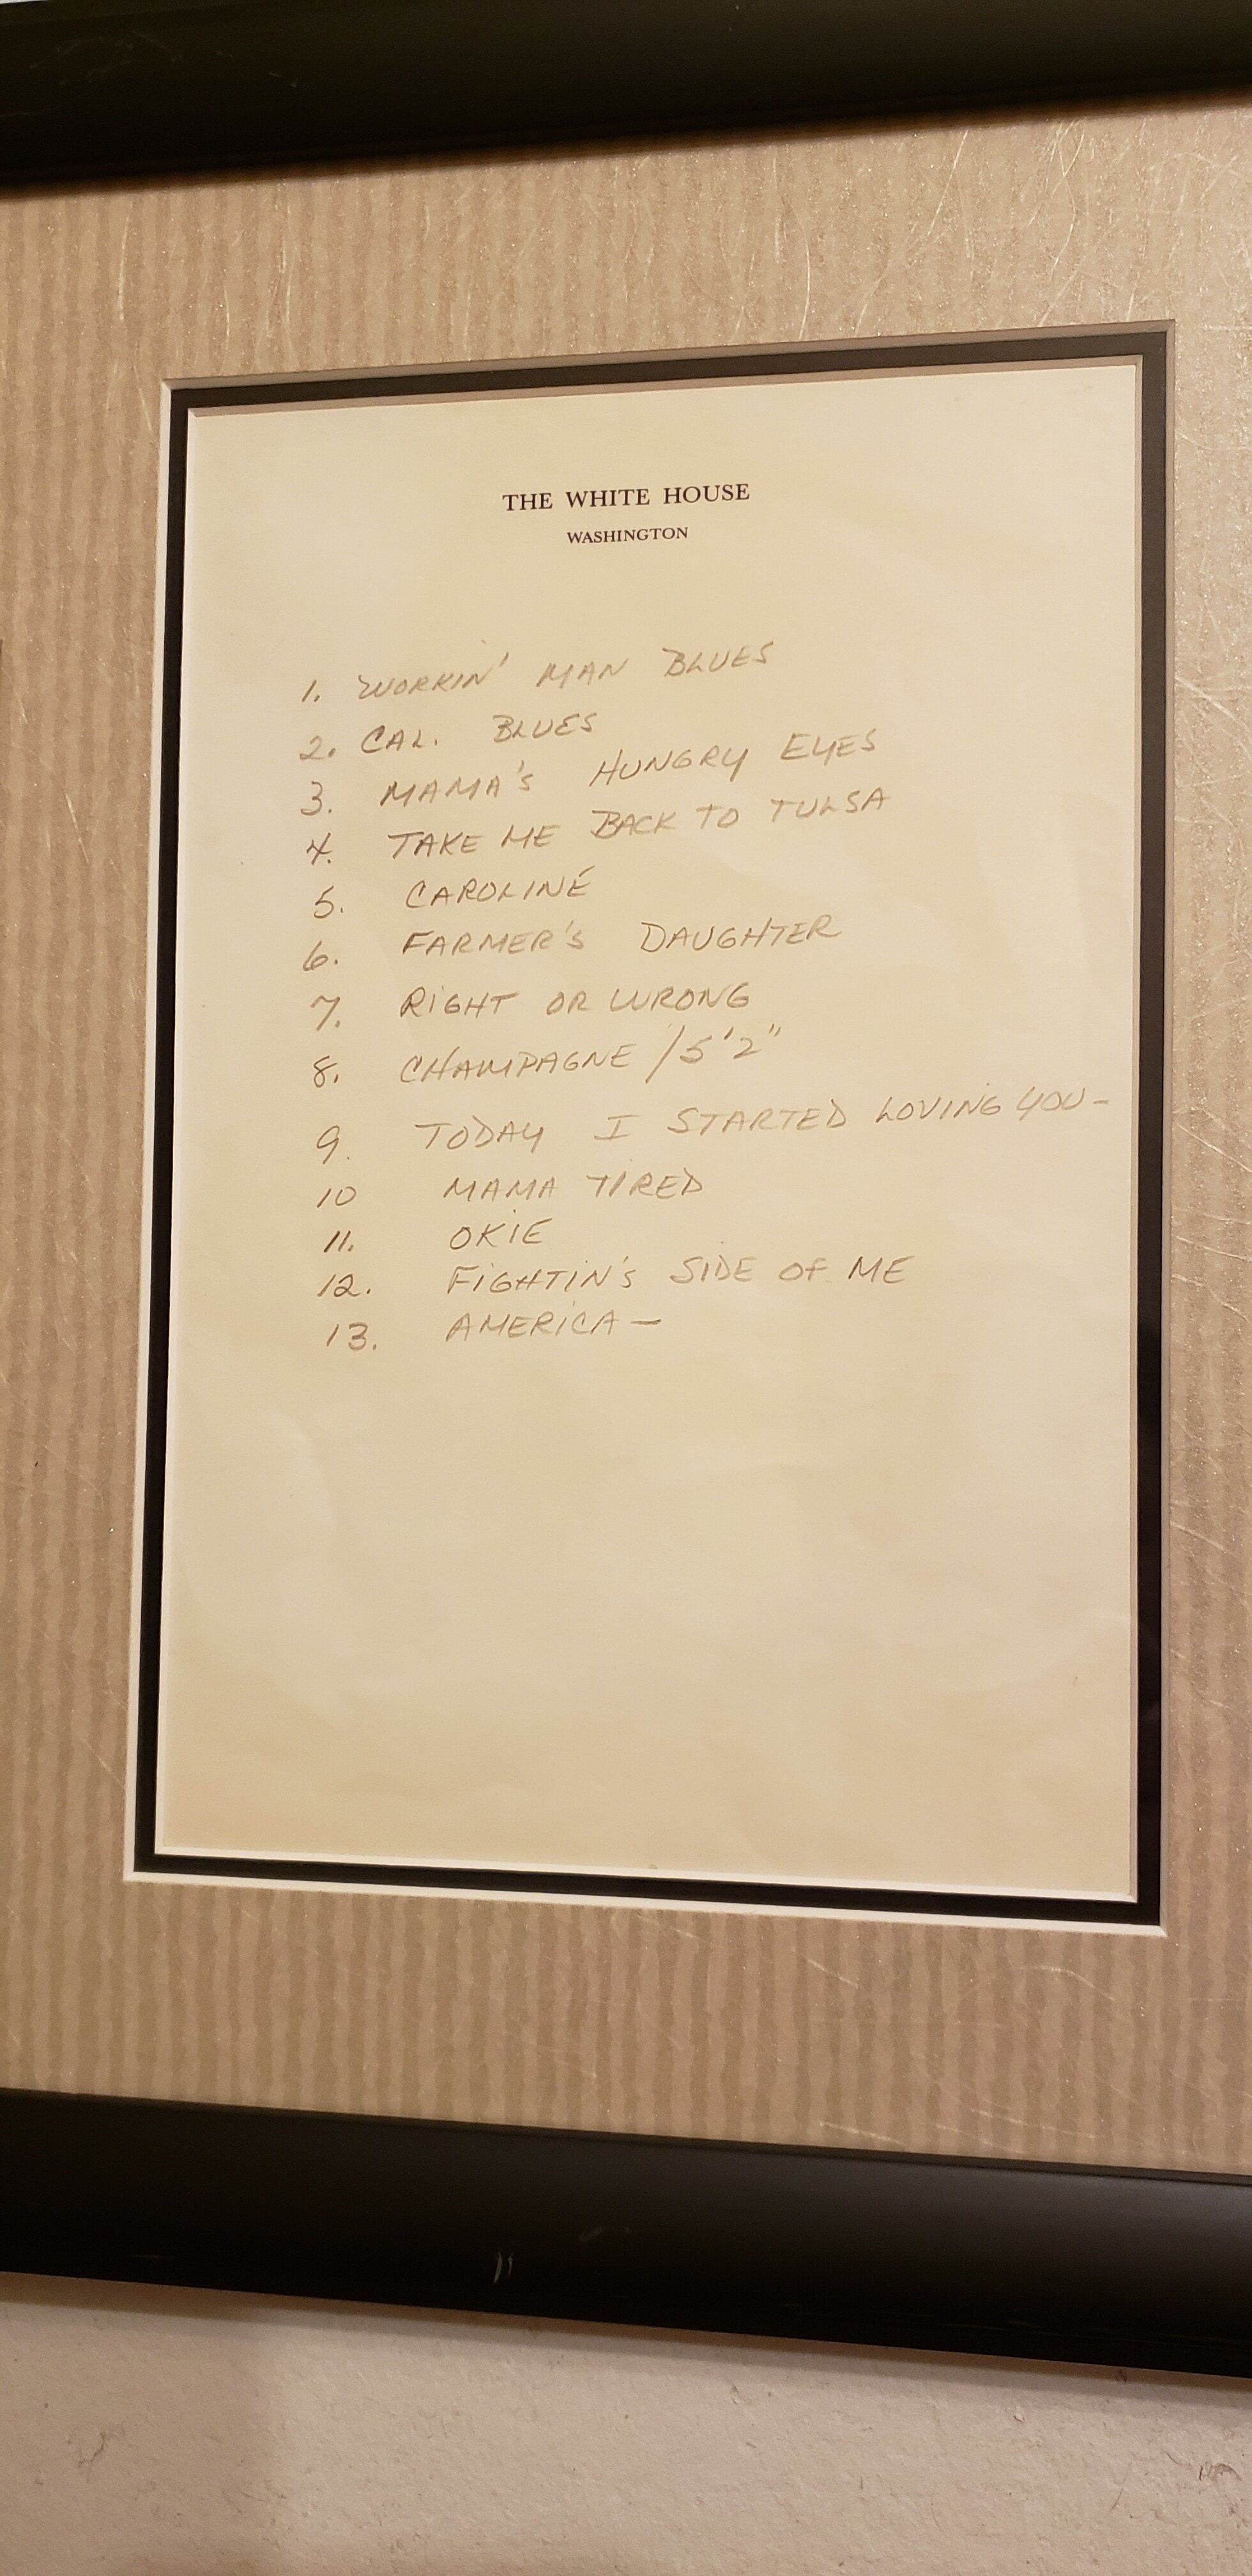 THE WHITE HOUSE
WASHINGTON
1. WORKIN' MAN BLUES
2. CAL. BLUES
3. MAMA'S HUNGRY EYES
4. TAKE ME BACK TO TULSA
5. CAROLINE
6. FARMER'S DAUGHTER
7. RIGHT OR WRONG
8. CHAMPAGNE / 5'2"
9. TODAY I STARTED LOVING YOU-
10 MAMA TIRED
11. OKIE
12. FIGHTIN'S SIDE OF ME
13. AMERICA-